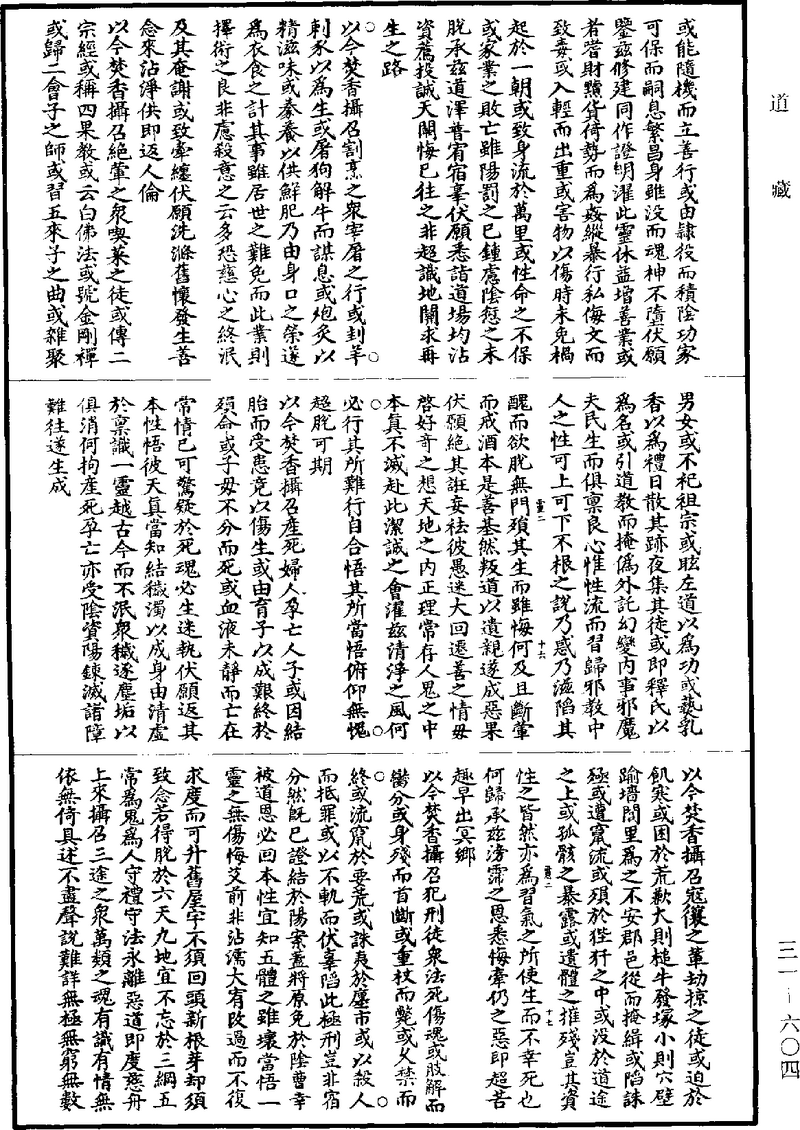 道藏
或能隨機而立善行或由隸役而積陰功家
可保而嗣息繁昌身雖没而魂神不墮伏願
鑒兹修建同作證明濯此靈休益增善業或
者営財黷貨倚勢而為姦縱暴行私侮文而
致毒或入輕而出重或害物以傷時未免禍
起於一朝或致身流於萬里或性命之不保
或家業之敗亡雖陽罰之已鍾慮陰愆之未
脱承兹道澤普宥宿辜伏願悉詣道場均沾
資薦投誠天闕悔已往之非超識地關求再
生之路
以今焚香攝召割烹之衆宰屠之行或刲羊
刺豕以為生或屠狗解牛而謀息或炮炙以
精滋味或豢養以供鮮肥乃由身口之榮遂
為衣食之計其事雖居世之難免而此業則
擇術之良非慮殺意之云多恐慈心之終泯
及其奄謝或致牽纏伏願洗滌舊懷發生善
念來沾淨供即返人倫
以今焚香攝召絶葷之衆喫菜之徒或傳二
宗經或稱四果教或云白佛法或號金剛禪
或歸二會子之師或習五來子之曲或雜聚
男女或不祀祖宗或眩左道以為功或爇乳
香以為禮日散其跡夜集其徒或即釋氏以
為名或引道教而掩偽外託幻變内事邪魔
夫民生而俱禀良心惟性流而習歸邪教中
人之性可上可下不根之說乃惑乃滋陷其
醜而欲脱無門殞其生而雖悔何及且斷葷
而戒酒本是善基然叛道以遺親遂成惡果
伏願絶其誑妄祛彼愚迷大回遷善之情毋
啓好奇之想天地之内正理常存人鬼之中
本真不滅赴此潔誠之會濯兹清淨之風何
必行其所難行自合悟其所當悟俯仰無愧
超脱可期
以今焚香攝召產死婦人孕亡人子或因結
胎而受患竟以傷生或由育子以成艱終於
殞命或子母不分而死或血液未靜而亡在
常情已可驚疑於死魂必生迷執伏願返其
本性悟彼天真當知結穢濁以成身由清虛
於禀識一靈越古今而不泯衆穢逐塵垢以
俱消何拘產死孕亡亦受陰資陽鍊滅諸障
難往遂生成
以今焚香攝召寇攘之輩劫掠之徒或迫於
飢寒或困於荒歉大則槌牛發塚小則穴壁
踰墻閭里為之不安郡邑從而掩緝或陷誅
殛或遭竄流或殞於狴犴之中或没於道途
之上或孤骸之暴露或遺體之摧殘豈其資
性之皆然亦為習氣之所使生而不幸死也
何歸承兹滂霈之恩悉悔牽仍之惡即超苦
趣早出冥鄉
以今焚香攝召犯刑徒衆法死傷魂或肢解而
臠分或身殘而首斷或重杖而斃或久禁而
終或流竄於要荒或誅夷於鄽市或以殺人
而抵罪或以不軌而伏辜陷此極刑豈非宿
分然既已證結於陽案蓋將原免於陰曹幸
被道恩必回本性宜知五體之雖壞當悟一
靈之無傷悔艾前非沾濡大宥改過而不復
求度而可升舊屋宇不須回頭新根芽却須
致念若得脱於六天九地宜不忘於三綱五
常為鬼為人守禮守法永離惡道即度慈舟
上來攝召三途之衆萬類之魂有識有情無
依無倚具述不盡聲說難詳無極無窮無數
靈二
十六
靈二
十七
三一—六〇四